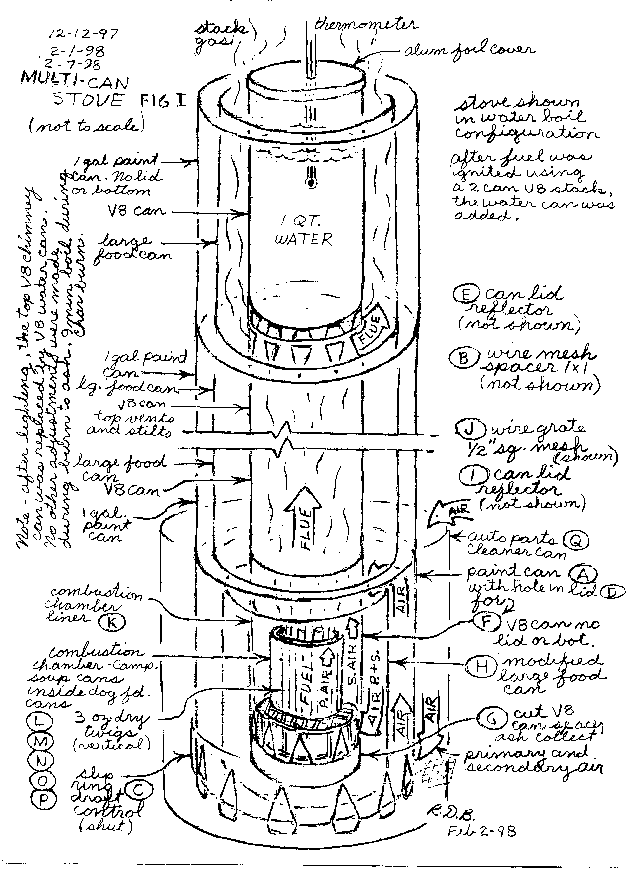 12-12-97
2-1-98
2-7-98
MULTI-CAN
STOVE FIG I
(not to scale)
stack
gas
thermometer
alum foil cover
stove shown
in water boil
configuration
after fuel was
ignited using
a 2 can V8 stack,
the water can was
added.
1 gal paint
can. No lid
or bottom
V8 can
large
food can
1 QT.
WATER
FLUE
Note: after lighting, the top V8 chimney
can was replaced by V8 water can.
No other adjustments were made
during burn. 9 min boil during
char burn.
E can lid
reflector
(not shown)
B wire mesh
spacer 1x1
(not shown)
1 gal paint
can
lg. food can
V8 can
top vents
and stilts
J wire grate
1/2" sq. mesh
(shown)
I can lid
reflector
(not shown)
large food
can
V8 can
1 gal.
paint
can
FLUE
AIR
auto parts Q
cleaner can
paint can A
with hole in lid D
for
F V8 can no
lid or bot.
H modified
large food
can
G cut V8
can spacer
ash collect
primary and
secondary air
combustion
chamber
liner K
combustion
chamber - Camp.
soup cans
inside dog fd.
cans
L
M
N
O
P
3 oz dry
twigs
(vertical)
slip
ring C
draft
control
(shut)
FUEL
P. AIR
S. AIR
AIR P.+S.
AIR
AIR
AIR
R.D.B.
Feb 2-98